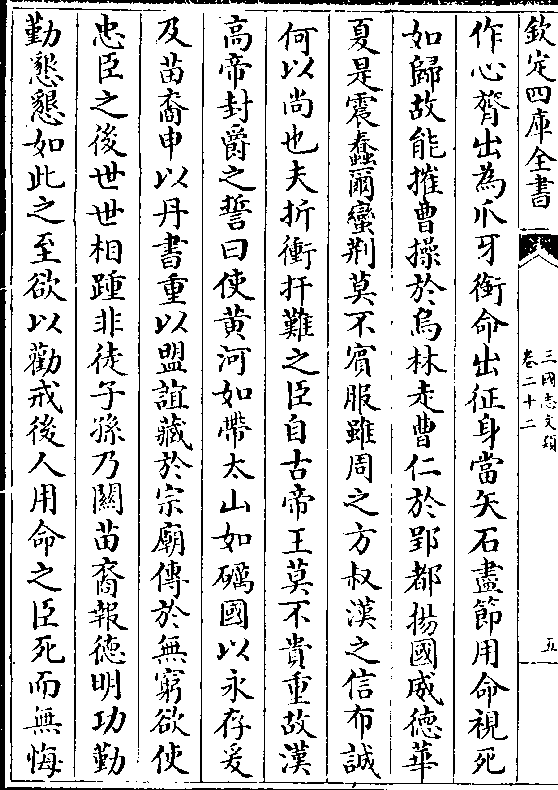 欽定四庫全書
三國志文類
卷二十二
五
作心膂出為爪牙銜命出征身當矢石盡節用命視死
如歸故能摧曹操於烏林走曹仁於郢都揚國威德華
夏是震蠢爾蠻荆莫不賓服雖周之方叔漢之信布誠
何以尚也夫折衝扞難之臣自古帝王莫不貴重故漢
高帝封爵之誓曰使黄河如帶太山如礪國以永存爰
及苗裔申以丹書重以盟誼藏於宗廟傳於無窮欲使
忠臣之後世世相踵非徒子孫乃闗苗裔報徳明功勤
勤懇懇如此之至欲以勸戒後人用命之臣死而無悔